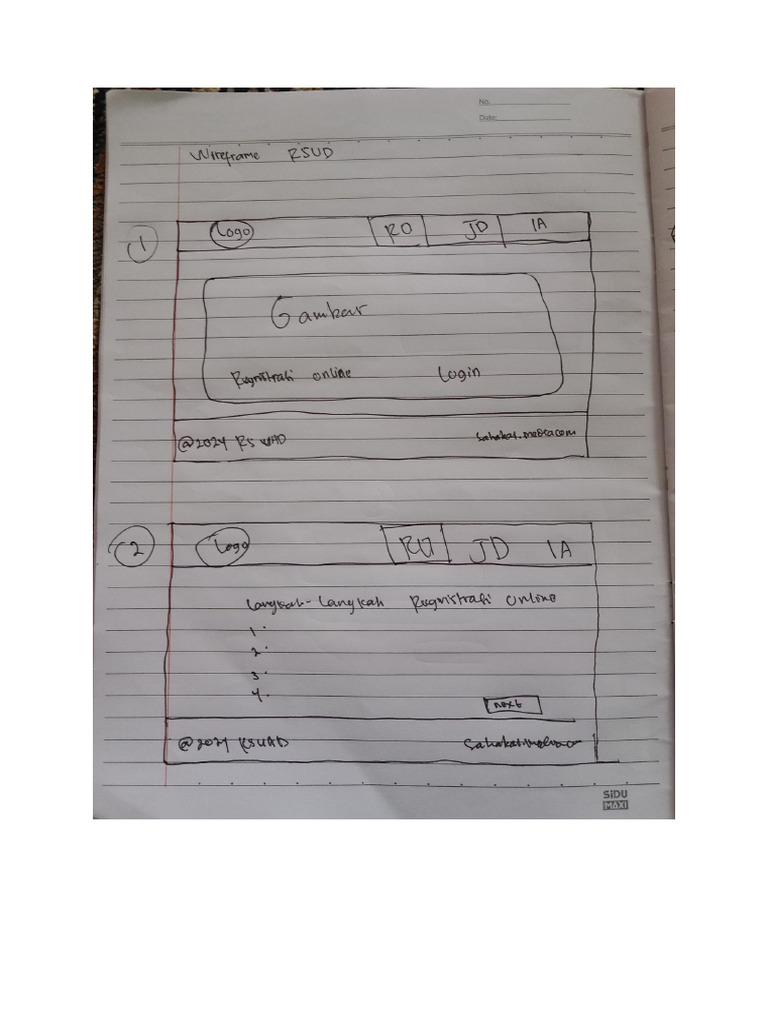 No.
Date:
Wireframe RSUD
1
Logo RO JD IA
Gambar
Regristrasi online Login
@2024 RSUAD
sahabat.media.com
2
Logo RO JD IA
Langkah-Langkah Regristrasi online
1.
2.
3.
4.
next
@2024 RSUAD
SiDU
MAXI